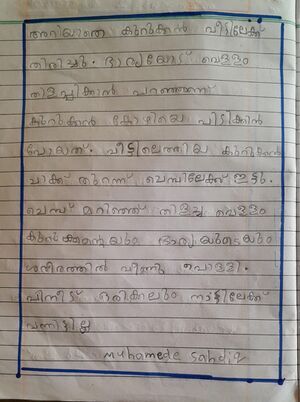 അറിയാതെ കുറുക്കൻ വീട്ടിലേക്ക്
തിരിച്ചു. ഭാര്യയോട് വെള്ളം
തിളപ്പിക്കാൻ പറഞ്ഞാണ്
കുറുക്കൻ കോഴിയെ പിടിക്കാൻ
പോയത്. വീട്ടിലെത്തിയ കുറുക്കൻ
ചാക്ക് തുറന്ന് ചെമ്പിലേക്ക് ഇട്ടു.
ചെമ്പ് മറിഞ്ഞ് തിളച്ച വെള്ളം
കുറുക്കന്റെയും ഭാര്യയുടെയും
ശരീരത്തിൽ വീണു പൊള്ളി.
പിന്നീട് ഒരിക്കലും നാട്ടിലേക്ക്
വന്നിട്ടില്ല
Muhamede Sahdiq